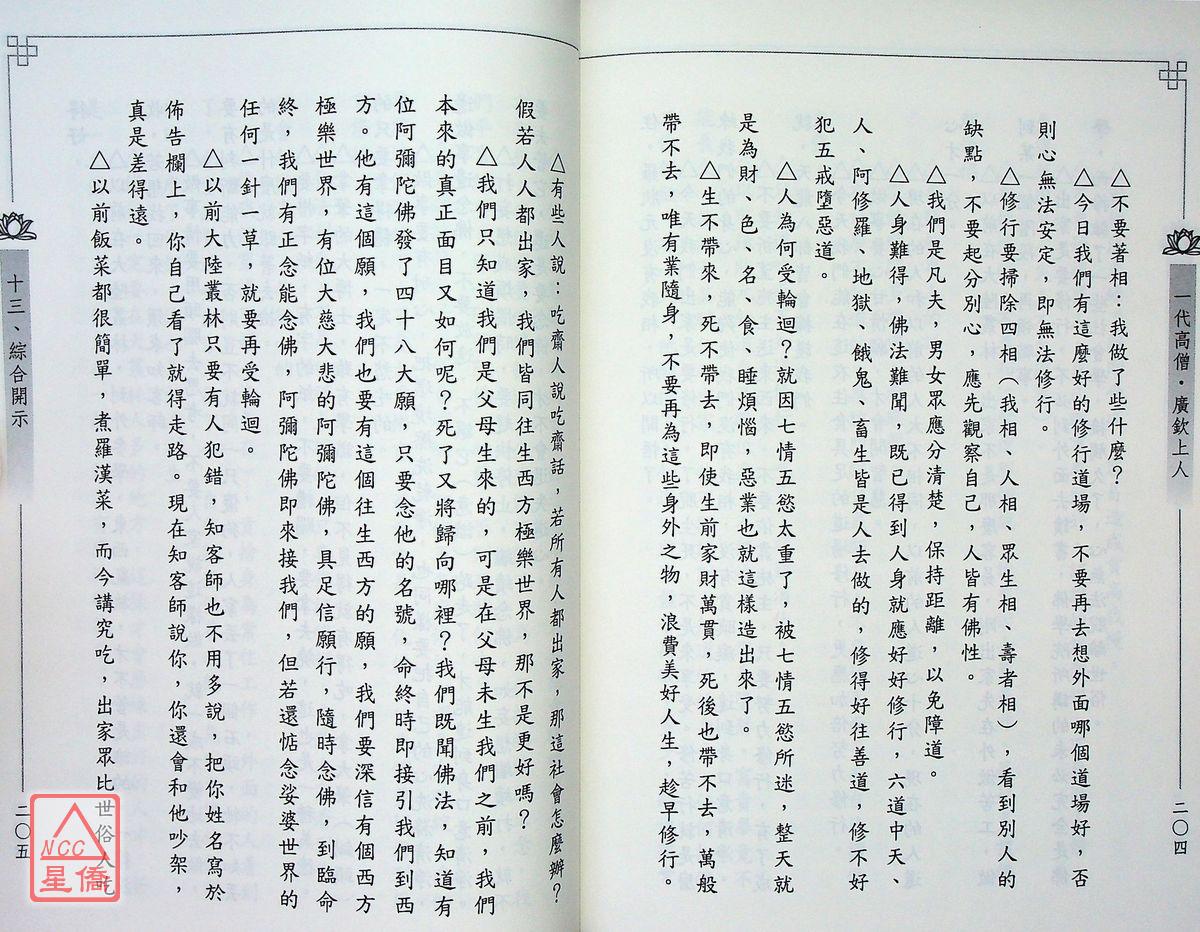 一代高僧・廣欽上人
二〇四
△不要著相：我做了些什麼？
△今日我們有這麼好的修行道場，不要再去想外面哪個道場好，否
則心無法安定，即無法修行。
△修行要掃除四相（我相、人相、眾生相、壽者相），看到別人的
缺點，不要起分別心，應先觀察自己，人皆有佛性。
△我們是凡夫，男女眾應分清楚，保持距離，以免障道。
△人身難得，佛法難聞，既已得到人身就應好好修行，六道中天、
人、阿修羅、地獄、餓鬼、畜生皆是人去做的，修得好往善道，修不好
犯五戒墮惡道。
△人為何受輪迴？就因七情五慾太重了，被七情五慾所迷，整天就
是為財、色、名、食、睡煩惱，惡業也就這樣造出來了。
△生不帶來，死不帶去，即使生前家財萬貫，死後也帶不去，萬般
帶不去，唯有業隨身，不要再為這些身外之物，浪費美好人生，趁早修行。
△有些人說：吃齋人說吃齋話，若所有人都出家，那這社會怎麼辦？
假若人人都出家，我們皆同往生西方極樂世界，那不是更好嗎？
△我們只知道我們是父母生來的，可是在父母未生我們之前，我們
本來的真正面目又如何呢？死了又將歸向哪裡？我們既聞佛法，知道有
位阿彌陀佛發了四十八大願，只要念他的名號，命終時即接引我們到西
方。他有這個願，我們也要有這個往生西方的願，我們要深信有個西方
極樂世界，有位大慈大悲的阿彌陀佛，具足信願行，隨時念佛，到臨命
終，我們有正念能念佛，阿彌陀佛即來接我們，但若還惦念娑婆世界的
任何一針一草，就要再受輪迴。
△以前大陸叢林只要有人犯錯，知客師也不用多說，把你姓名寫於
佈告欄上，你自己看了就得走路。現在知客師說你，你還會和他吵架，
真是差得遠。
△以前飯菜都很簡單，煮羅漢菜，而今講究吃，出家眾比世俗人吃
十三、綜合開示
二〇五
NCC
星僑